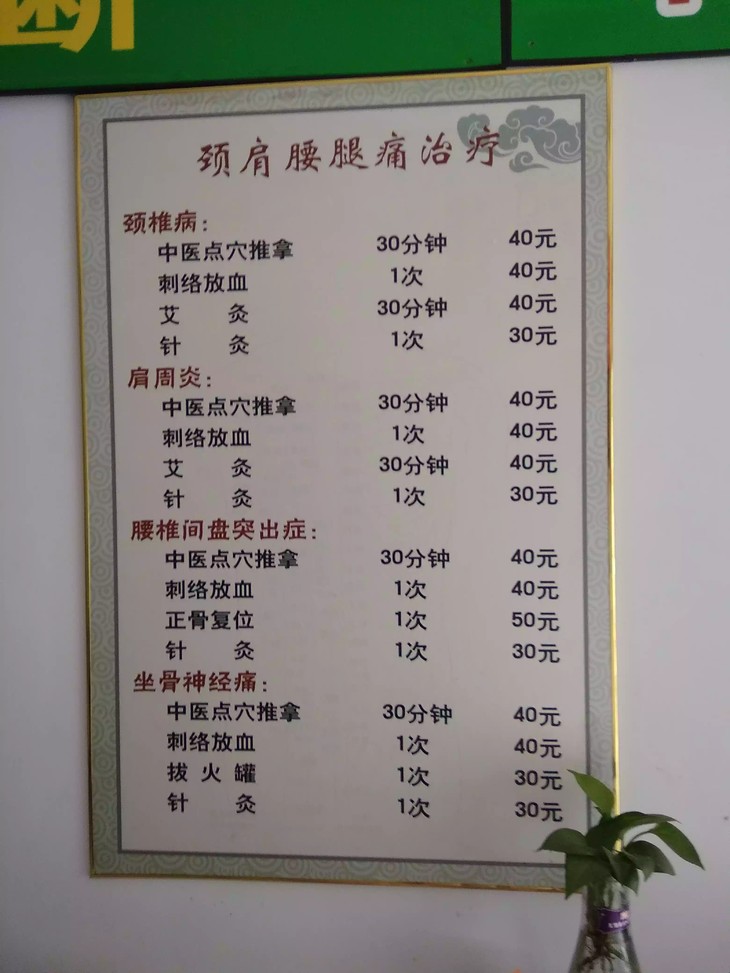 断
颈肩腰腿痛治疗
颈椎病：
中医点穴推拿 30分钟 40元
刺络放血 1次 40元
艾 灸 30分钟 40元
针 灸 1次 30元
肩周炎：
中医点穴推拿 30分钟 40元
刺络放血 1次 40元
艾 灸 30分钟 40元
针 灸 1次 30元
腰椎间盘突出症：
中医点穴推拿 30分钟 40元
刺络放血 1次 40元
正骨复位 1次 50元
针 灸 1次 30元
坐骨神经痛：
中医点穴推拿 30分钟 40元
刺络放血 1次 40元
拔火罐 1次 30元
针 灸 1次 30元